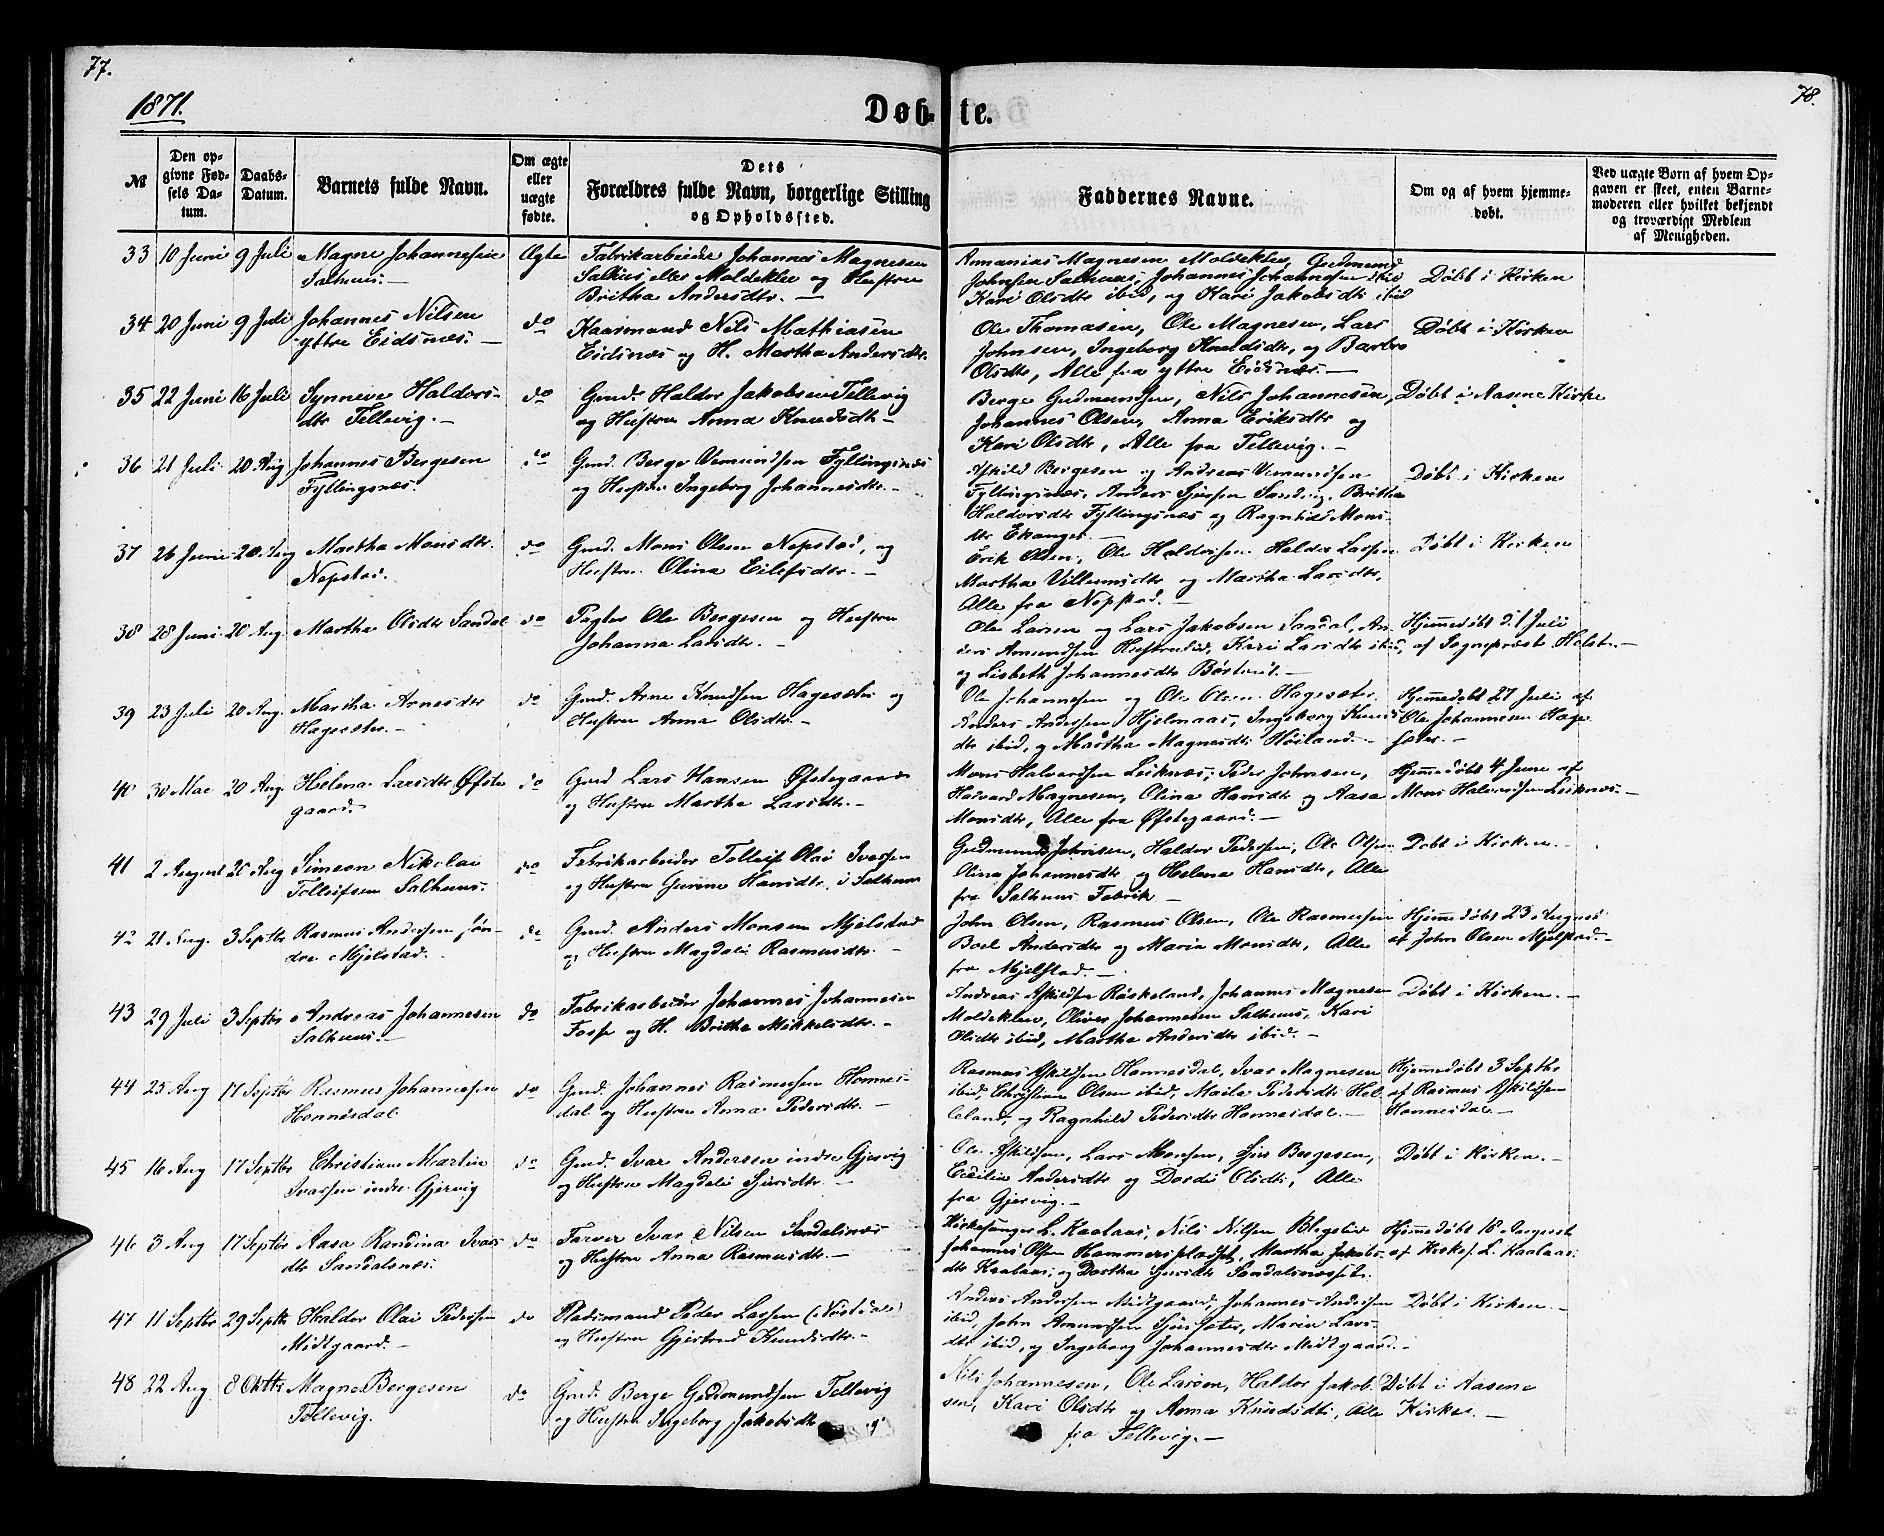 77.
78.
1871.
Døbte.
№
Den opgivne Fødsels Datum.
Daabs-Datum.
Barnets fulde Navn.
Om ægte eller uægte fødte.
Dets Forældres fulde Navn, borgerlige Stilling og Opholdssted.
Faddernes Navne.
Om og af hvem hjemmedøbt.
Ved uægte Børn af hvem Opgaven er skeet, enten Barnemoderen eller hvilket bekjendt og troværdigt Medlem af Menigheden.
33 10 Juni 9 Juli Magne Johannesen Ægte Fabrikarbeider Johannes Magnesen
Salhuus.- Salhus eller Moldeklev og Hustru
Britha Andersdtr. -
Magnesen Moldeklev, Gudmund
Johnsen Salhuus, Johannes Johannesen ibid
Kari Olsdtr ibid, og Kari Jakobsdtr ibid
Døbt i Kirken
34 20 Juni 9 Juli Johannes Nilsen do Kaarmand Nils Mathiasen
yttre Eidsnes. - Eidsnæs og H. Martha Andersdtr.
Ole Thomasen, Ole Magnesen, Lars
Johnsen, Ingeborg Knudsdtr, og Barbro
Olsdtr, Alle fra yttre Eidsnæs. -
Døbt i Kirken
35 22 Juni 16 Juli Synneve Haldorsdtr Tellevig. - do Gmd. Haldor Jakobsen Tellevig
og Hustru Anna Knudsdtr -
Berge Gudmundsen, Nils Johannesen,
Johannes Olsen, Anna Eriksdtr og
Kari Olsdtr, Alle fra Tellevig. -
Døbt i Aasene Kirke
36 21 Juli 20 Aug Johannes Bergesen do Gmd. Berge Vemundsen Fyllingsnes
Fyllingsnæs. og Hustru Ingeborg Johannesdtr. -
Askild Bergesen og Andreas Vemundsen
Fyllingsnæs, Anders Sjursen Sandvig, Britha
Haldorsdtr Fyllingsnæs og Ragnhild Monsdtr Ekanger. -
Døbt i Kirken
37 26 Juni 20. Aug Martha Monsdtr. do Gmd. Mons Olsen Nepstad, og
Nepstad. Hustru Olina Eilefsdtr. -
Erik Olsen, Ole Haldorsen, Haldor Larsen
Martha Villumsdtr og Martha Larsdtr,
Alle fra Nepstad. -
Døbt i Kirken
38 28 Juni 20 Aug. Martha Olsdtr Sandal do Pagter Ole Bergesen og Hustru
Johanna Larsdtr. -
Ole Larsen og Lars Jakobsen Sandal, Anders Amundsen, Kari Larsdtr ibid,
og Lisbeth Johannesdtr
Hjemmedøbt d. 1 Juli
af Sogneprest Holst. -
39 23 Juli 20 Aug. Martha Arnesdtr do Gmd. Arne Knudsen Hagesæter og
Hagesæter. - Hustru Anna Olsdtr. -
Ole Johannesen og Ole Olsen Hagesæter
Anders Andersen Hjelmaas, Ingeborg Knudsdtr ibid, og Martha Magnesdtr Høiland. -
Hjemmedøbt 27 Juli af
Ole Johannesen Hagesæter. -
40 30 Mai 20 Aug. Helena Larsdtr Øfstegaard. do Gmd Lars Hansen Øfstegaard
og Hustru Martha Larsdtr. -
Mons Halvardsen Leiknæs, Peder Johnsen,
Havard Magnesen, Olina Hansdtr og Aasa
Monsdtr, Alle fra Øfstegaard. -
Hjemmedøbt 4 Juni af
Mons Halvardsen Leiknæs. -
41 2 August 20 Aug Simeon Nikolai do Fabrikarbeider Tolleif Olai Ivarsen
Tolleifsen Salhuus. og Hustru Gurine Hansdtr. i Salhuus
Gudmund Johnsen, Haldor Pedersen, Ole Olsen
Olina Johannesdtr og Helena Hansdtr, Alle
fra Salhuus Fabrik -
Døbt i Kirken. -
42 21 Aug. 3 Septbr Rasmus Andersen søndre Mjelstad. do Gmd. Anders Monsen Mjelstad
og Hustru Magdali Rasmusdtr. -
John Olsen, Rasmus Olsen, Ole Rasmussen
Boel Andersdtr og Maria Monsdtr, Alle
fra Mjelstad. -
Hjemmedøbt 23 August
af John Olsen Mjelstad. -
43 29 Juli 3 Septbr Andreas Johannesen do Fabrikarbeider Johannes Johannesen
Salhuus. - Fosse og H. Britha Mikkelsdtr. -
Andreas Askildsen Røskeland, Johannes Magnesen
Moldeklev, Oliver Johannesen Salhuus, Kari
Olsdtr ibid, Martha Andersdtr ibid. -
Døbt i Kirken. -
44 25 Aug 17 Septbr Rasmus Johannesen do Gmd. Johannes Rasmussen Honnesdal og Hustru Anna Pedersdtr. -
Honnesdal
Rasmus Askildsen Honnesdal, Ivar Magnesen
ibid, Christian Olsen ibid, Pedersdtr Helleland, og Ragnhild Pedersdtr Honnesdal. -
Hjemmedøbt 3 Septbr
af Rasmus Askildsen
Honnesdal. -
45 16 Aug 17 Septbr Christian Martin do Gmd. Ivar Andersen indre Gjervig
Ivarsen indre Gjervig og Hustru Magdali Sjursdtr -
Ole Askildsen, Lars Monsen, Sjur Bergesen,
Andersdtr og Dordei Olsdtr, Alle
fra Gjervig. -
Døbt i Kirken. -
46 3 Aug 17 Septbr Aasa Randina Ivarsdtr Sandalsnæs. do Farver Ivar Nilsen Sandalsnæs
og Hustru Anna Rasmusdtr. -
Kirkesanger L. Kaalaas, Nils Nilsen
Johannes Olsen Hammerspladset, Martha Jakobsdtr Kaalaas, og Dortha Sjursdtr
Hjemmedøbt 18 August
af Kirkes. L. Kaalaas.
47 11 Septbr 29 Septbr Haldor Olai Pedersen do Pladsmand Peder Larsen
Midtgaard. - og Hustru Gjertrud Knudsdtr. -
Anders Andersen Midtgaard, Johannes Andersen
ibid, John Amundsen, Maria Larsdtr ibid, og Ingeborg Johannesdtr Midtgaard. -
Døbt i Kirken. -
48 22 Aug 8 Oktbr Magne Bergesen do Gmd. Berge Gudmundsen Tellevig
Tellevig. og Hustru Ingeborg Jakobsdtr
Nils Johannesen, Ole Larsen, Haldor Jakobsen, Kari Olsdtr og Anna Knudsdtr, Alle
fra Tellevig. -
Døbt i Aasene
Kirke. -